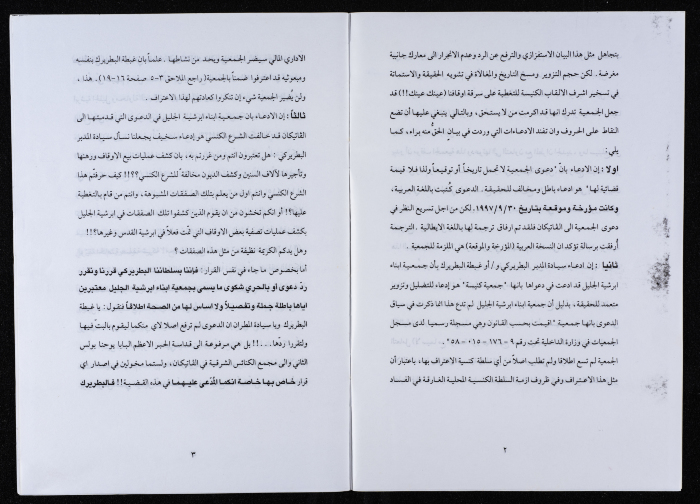 بتجاهل مثل هذا البيان الاستفزازي والترفع عن الرد وعدم الانجرار الى معارك جانبية
مغرضة . لكن حجم التزوير ومسخ التاريخ والمغالاة في تشويه الحقيقة والاستماتة
في تسخير اشرف الالقاب الكنسية للتغطية على سرقة اوقافنا (عينك عينك!!) قد
جعل الجمعية تدرك انها قد اكرمت من لا يستحق ، وبالتالي ينبغي عليها أن تضع
النقاط على الحروف وان تفند الادعاءات التي وردت في بيان الحق منه براء، كما
يلي:
اولا : إن الادعاء بان "دعوى الجمعية لا تحمل تاريخاً أو توقيعاً ولذا فلا قيمة
قضائية لها" هو ادعاء باطل ومخالف للحقيقة . الدعوى كُتبت باللغة العربية،
وكانت مؤرخة وموقعة بتاريخ ١٩٩٧/٩/٣٠. لكن من اجل تسريع النظر في
دعوى الجمعية الى الفاتيكان فلقد تم ارفاق ترجمة لها باللغة الايطالية . الترجمة
أرفقت برسالة تؤكد ان النسخة العربية (المؤرخة والموقعة) هي الملزمة للجمعية .
ثانيا : إن ادعاء سيادة المدبر البطريركي و/ أو غبطة البطريرك بأن جمعية ابناء
ابرشية الجليل قد ادعت في دعواها بانها "جمعية كنسية" هو إدعاء للتضليل وتزوير
متعمد للحقيقة، بدليل أن جمعية ابناء ابرشية الجليل لم تدع هذا انما ذكرت في سياق
الدعوى بانها جمعية "اقيمت بحسب القانون وهي مسجلة رسميا لدى مسجل
الجمعيات في وزارة الداخلية تحت رقم ٩ - ١٧٦ - ٠١٥ - ٥٨" .
الجمعية لم تسع اطلاقا ولم تطلب اصلاً من أي سلطة كنسية الاعتراف بها، باعتبار أن
مثل هذا الاعتراف وفي ظروف ازمة السلطة الكنسية المحلية الغارقة في الفساد
٢
الاداري المالي سيضر الجمعية ويحد من نشاطها . علماً بان غبطة البطريرك بنفسه
ومبعوثيه قد اعترفوا ضمناً بالجمعية (راجع الملاحق ٣-٥ صفحة ١٦-١٩). هذا ،
ولن يُضير الجمعية شيء إن تنكروا كعادتهم لهذا الاعتراف .
ثالثاً : إن الادعاء بان جمعية ابناء ابرشية الجليل في الدعوى التي قدمتها الى
الفاتيكان قد خالفت الشرع الكنسي هو إدعاء سخيف يجعلنا نسأل سيادة المدبر
البطريركي : هل تعتبرون انتم ومن غررتم به، بان كشف عمليات بيع الاوقاف ورهنها
وتأجيرها لآلاف السنين وكشف الديون مخالفةً للشرع الكنسي ؟؟!! كيف حرفتُم هذا
الشرع الكنسي وانتم اول من يعلم بتلك الصفقات المشبوهة، وانتم من قام بالتغطية
عليها؟! أو انكم تخشون من ان يقوم الذين كشفوا تلك الصفقات في ابرشية الجليل
بكشف عمليات تصفية بعض الاوقاف التي تمّت فعلاً في ابرشية القدس وغيرها؟!!
وهل يدكم الكريمة نظيفة من مثل هذه الصفقات ؟
أما بخصوص ما جاء في نفس القرار : فإننا بسلطاننا البطريركي قررنا ونقرر
ردّ دعوى أو بالحري شكوى ما يسمى بجمعية ابناء ابرشية الجليل معتبرين
اياها باطلة جملة وتفصيلاً ولا اساس لها من الصحة اطلاقاً فنقول : يا غبطة
البطريرك ويا سيادة المطران ان الدعوى لم ترفع اصلا لاي منكما ليقوم بالبتّ فيها
ولتقررا ردّها ...!! بل هي مرفوعة الى قداسة الحبر الاعظم البابا يوحنا بولس
الثاني والى مجمع الكنائس الشرقية في الفاتيكان، ولستما مخولين في اصدار اي
قرار خاص بها خاصة انكما المُدّعى عليهما في هذه القضية!! فالبطريرك
٣